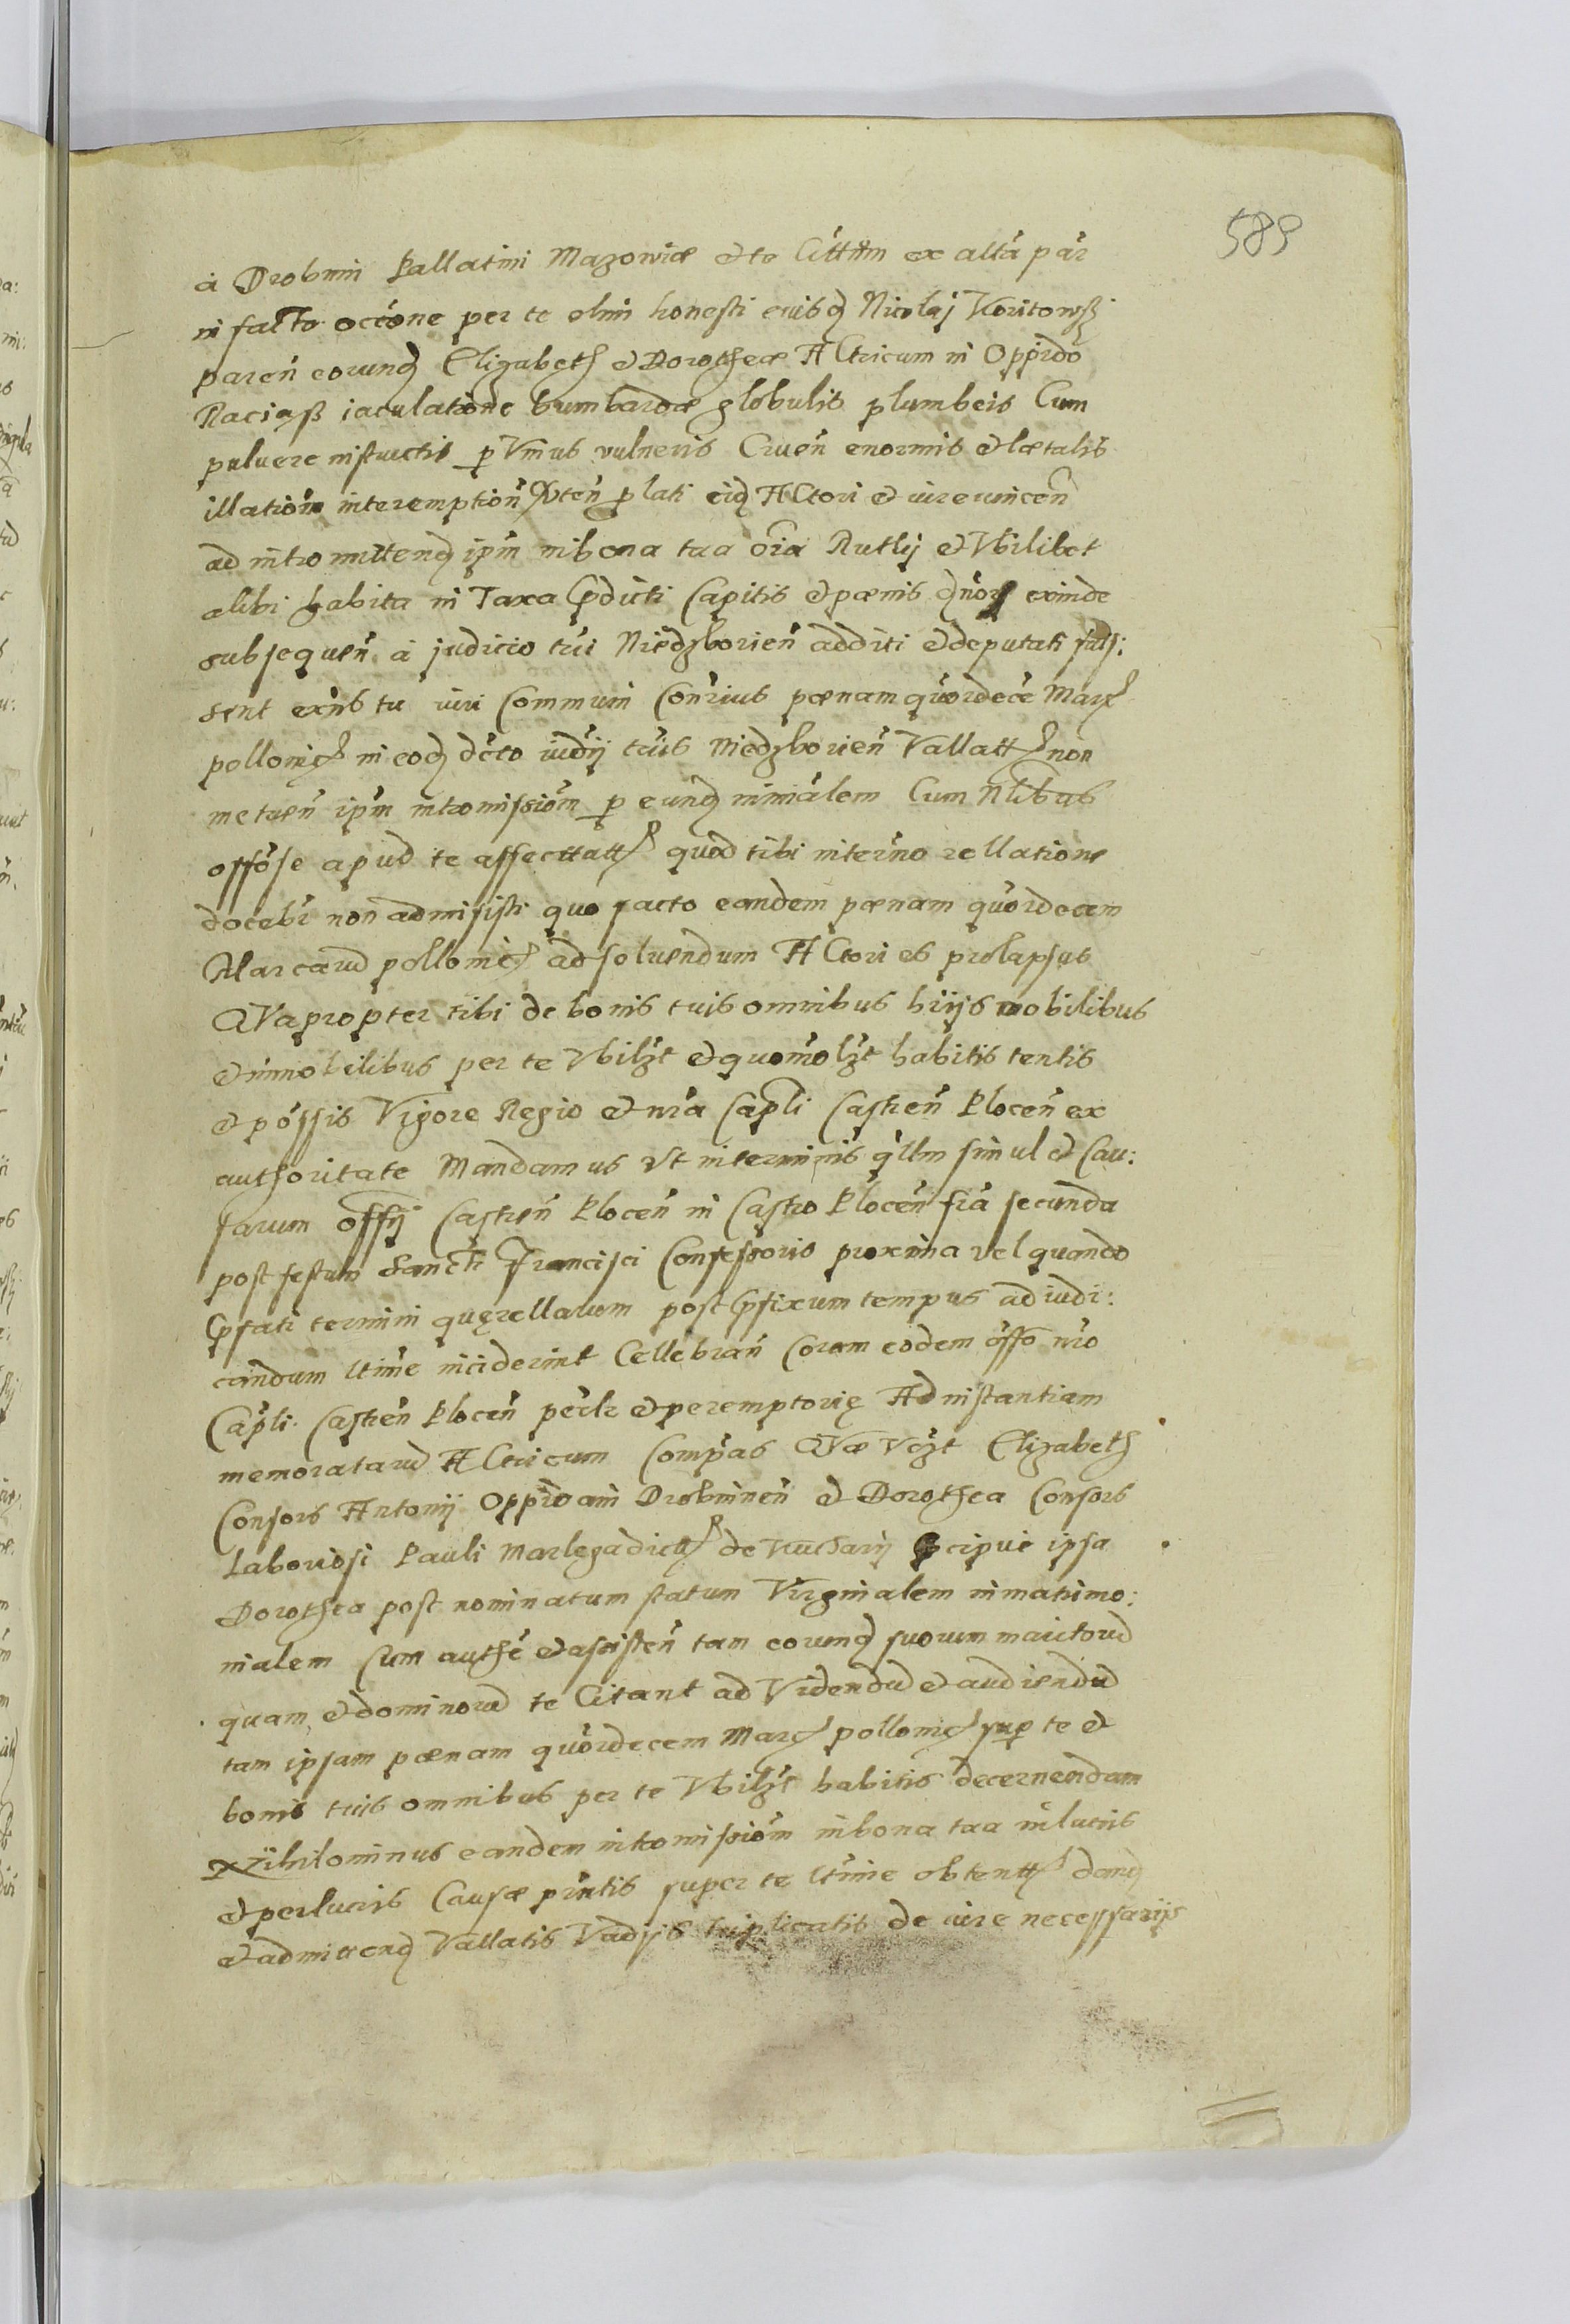 589
à Drobnin Pallatini Mazoviæ et te Cittũm ex altã pãr
in facto occõne per te olim honesti eiusq Nicolaj Koritowsß
paren̄ eorunq Elizabeth et Dorotheæ Actricum in Oppido
Raciąß iaculatione bumbardæ globulis plumbeis Cum
puluere instructis p Vnius vulneris Cruen̄ enormis et lætalis
illatiõm interemptiõn p lati eiq Actori et iure vincen̄
ad intromittenq ipm̄ in bona tua oīa Rutky et Vbilibet
alibi habita in Taxa prdicti Capitis et pænis exinde
subsequen̄ à judicio tui Niedzborien̄ additi et deputati fuis:
sent exn̄s tu iuri Communi Con̄rius pœnam qũordecē Marc
pollonic in eoq dc̄to iudij tuis Niedzborien̄ Vallatt non
metuen̄ ipm̄ intromissiõm p eunq minĩalem Cum Nlibus
offōse apud te affecttatt quod tibi interño rellatione
docebr̄ non admisisti quo facto eandem pœnam qũordecem
Marcarũ pollonic ad soluendum Actori es prolapsus
QVapropter tibi de bonis tuis omnibus hijs mobilibus
et immobilibus per te Vbilzt et quomõlzt habitis tentis
et põssis Vigore Regio et nr̄a Capli Castren̄ Plocen̄ ex
authoritate Mandamus Vt in terminis q̃llm simul et Cau:
sarum offij Castren̄ Plocen̄ in Castro Plocen̄ fr̄ia secunda
post festum Sancti Francisci Confessoris proxima vel quando
prfati termini quęrellarum post prfixum tempus ad iudi:
candum ltime inciderint Cellebran̄ Coram eodem offo nr̄o
Capli. Castren̄ Plocen̄ per̄lr et peremptorię Ad instantiam
memoratarũ Actricum Compãs QVæ Vczt Elizabeth
Consors Antonij Oppidani Drobninen̄ et Dorothea Consors
Laboriosi Pauli Marlęga dictt de prcipue ipsa
Dorothea post nominatum statum Virginialem in matrimo:
nialem Cum authē et assisten̄ tam eorunq suorum maritorũ
quam et dominorũ te Citant ad Videndũ et audiendũ
tam ipsam pœnam qũordecem Marc pollonic sup te et
bonis tuis omnibus per te Vbilzt habitis decernendam
Nihilominus eandem intromissiõm in bona tua in lucris
et perlucris Causæ prn̄tis super te ltime obtentt danq
et admittenq Vallatis Vadijs triplicatis de iure necessarijs